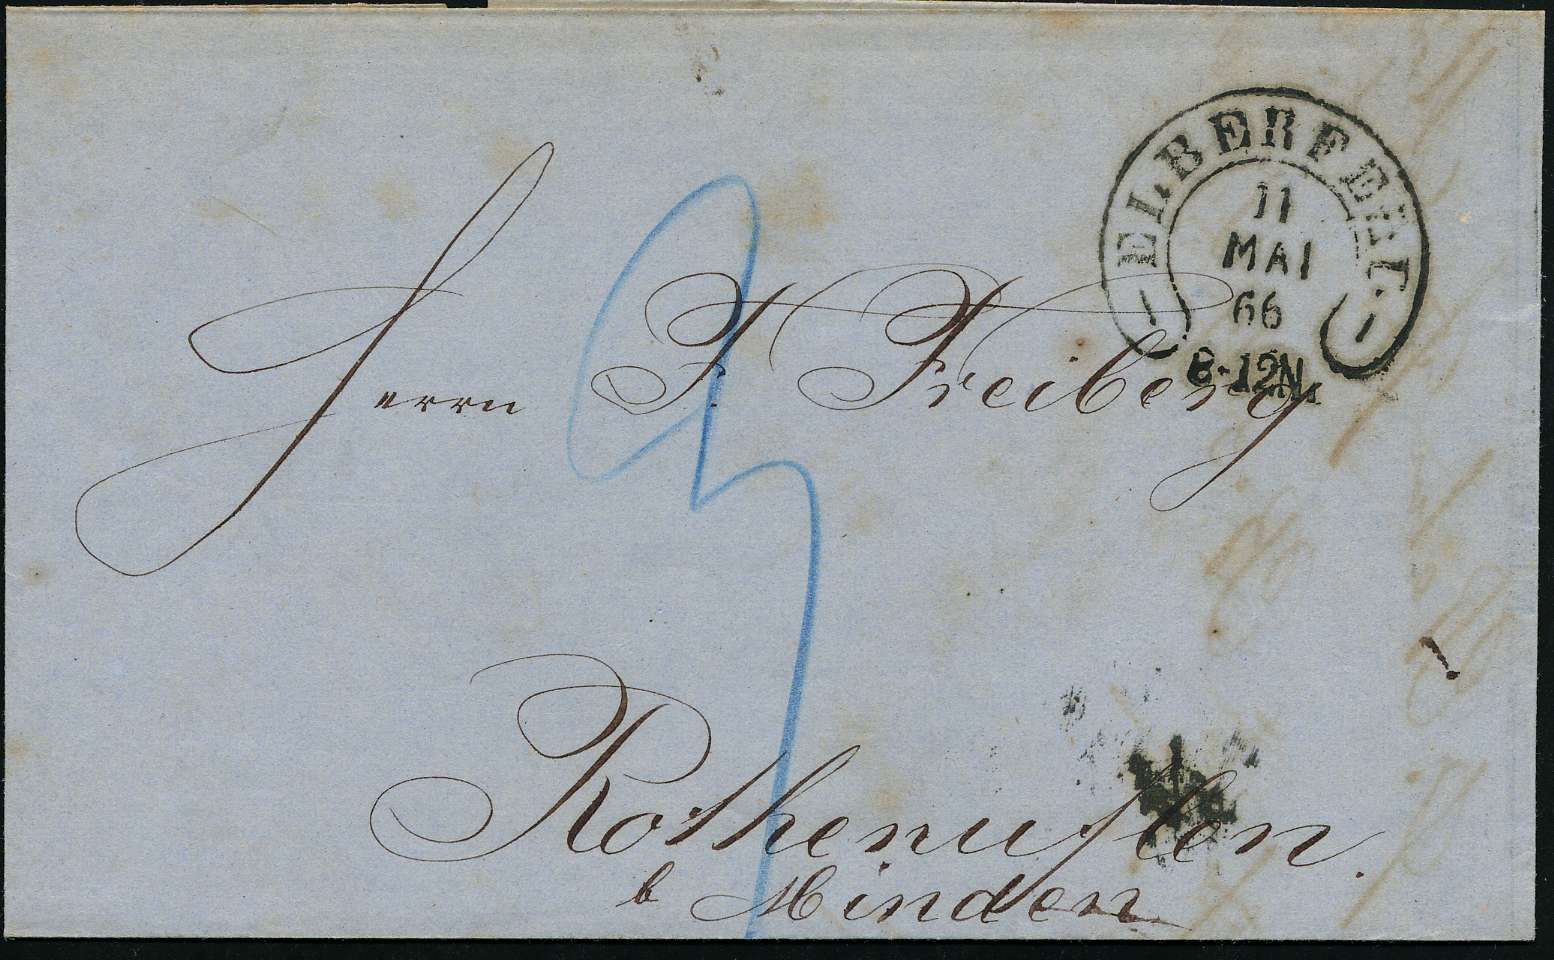 ELBERFELD
11
MAI
66
8-12N.
Herrn F. Freiberg
Rothenuflen.
b Minden
3